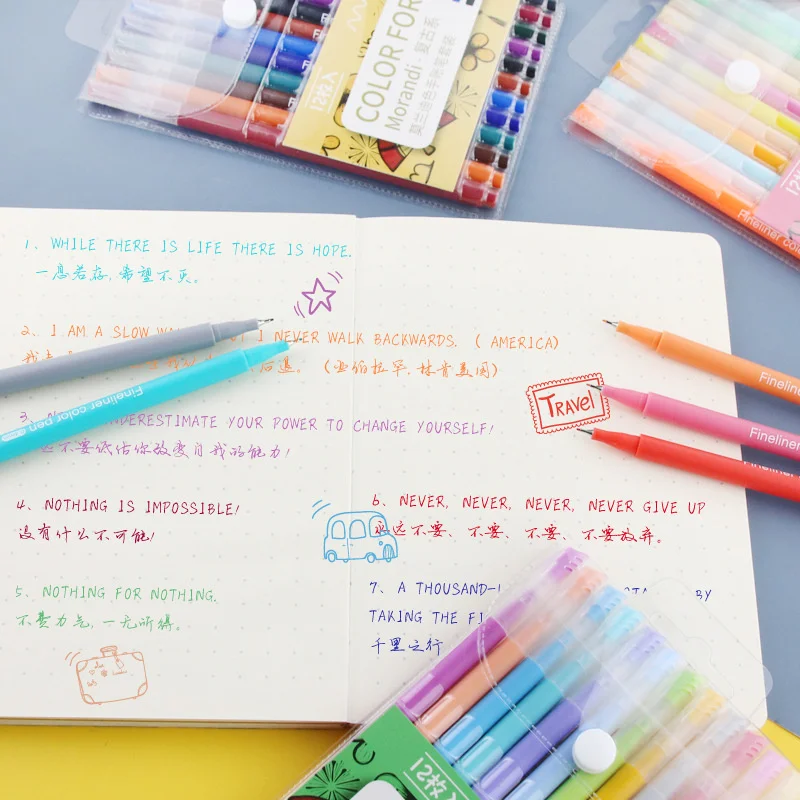 COLOR FOR
Morandi·复古系
莫兰迪色手帐笔套装
12枚入
Fineliner co
1、WHILE THERE IS LIFE THERE IS HOPE.
一息若存,希望不灭。
2、I AM A SLOW I NEVER WALK BACKWARDS.( AMERICA)
后退。(亚伯拉罕.林肯美国)
Fineliner color pen
Fineliner
TRAVEl
3 UNDERESTIMATE YOUR POWER TO CHANGE YOURSELF!
不要低估你改变自我的能力!
Fineliner
Fineliner
4、NOTHING IS IMPOSSIBLE!
没有什么不可能!
5、NOTHING FOR NOTHING.
不费力气,一无所得。
6、NEVER, NEVER, NEVER, NEVER GIVE UP
永远不要、不要、不要、不要放弃。
7、A THOUSAND- BY
TAKING THE FI
千里之行
12枚入